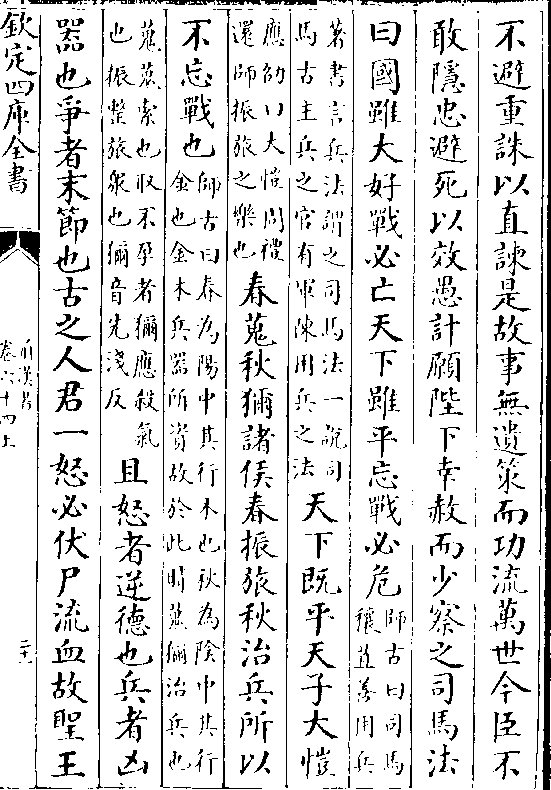 不避重誅以直諫是故事無遺策而功流萬世今臣不
敢隱忠避死以效愚計願陛下幸赦而少察之司馬法
曰國雖大好戰必亡天下雖平忘戰必危
師古曰司馬
穰苴善用兵
著書言兵法謂之司馬法一說司
馬古主兵之官有軍陳用兵之法
天下既平天子大愷
應劭曰大愷周禮
還師振旅之樂也
春蒐秋獮諸侯春振旅秋治兵所以
不忘戰也
師古曰春為陽中其行木也秋為陰中其行
金也金木兵器所資故於此時蒐獮治兵也
蒐蒐索也取不孕者獮應殺氣
也振整旅衆也獮音先淺反
且怒者逆德也兵者凶
器也爭者末節也古之人君一怒必伏尸流血故聖王
欽定四庫全書
前漢書
卷六十四上